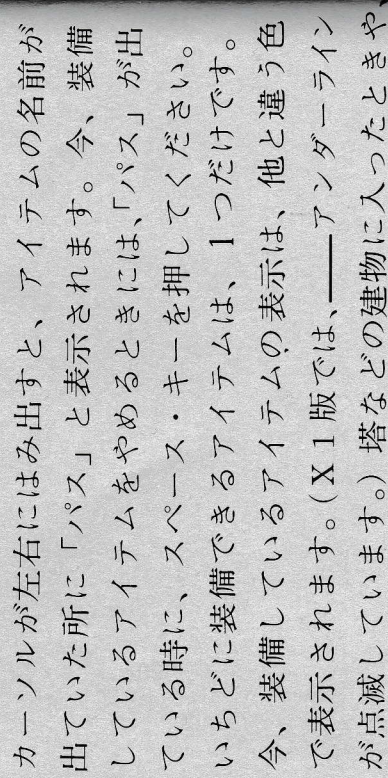 カーソルが左右にはみ出すと、アイテムの名前が
出ていた所に「パス」と表示されます。今、装備
しているアイテムをやめるときには、「パス」が出
ている時に、スペース・キーを押してください。
いちどに装備できるアイテムは、1つだけです。
今、装備しているアイテムの表示は、他と違う色
で表示されます。(X1版では、――アンダーライン
が点滅しています。)塔などの建物に入ったときや、